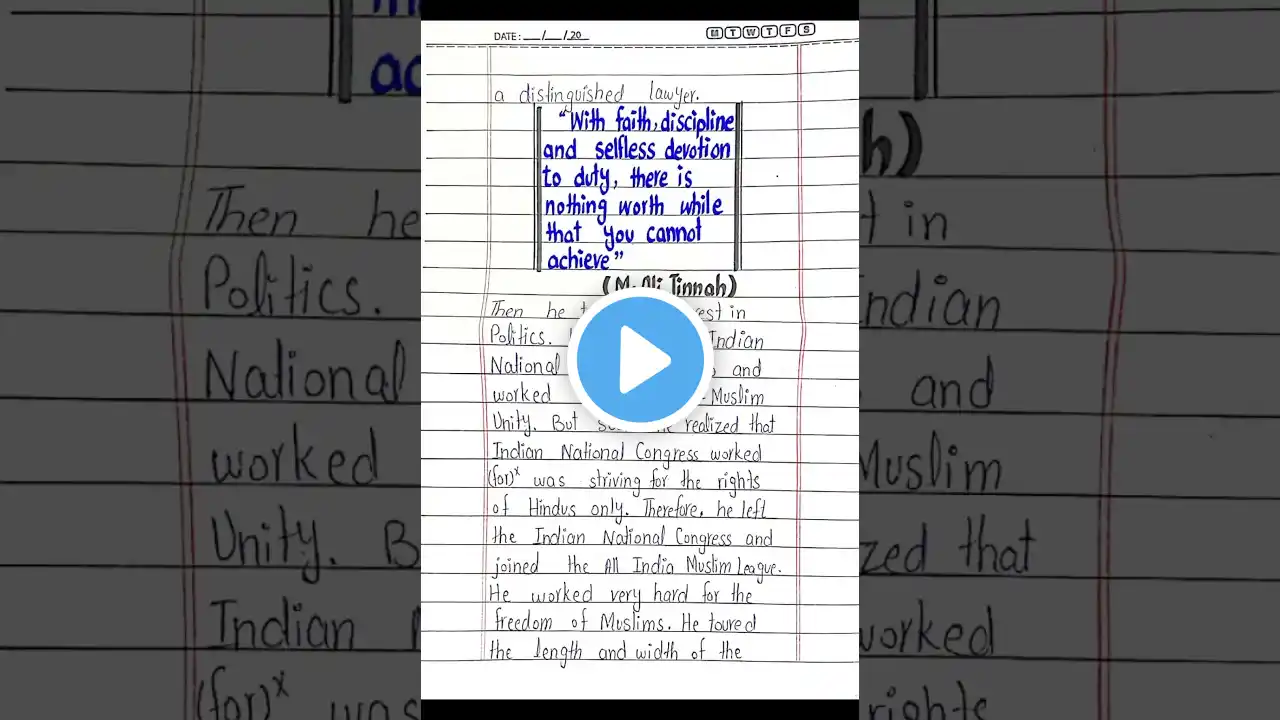 DATE: __/__/20__
M T W T F S
a distinguished lawyer.
"With faith, discipline
and selfless devotion
to duty, there is
nothing worth while
that you cannot
achieve"
(M. Ali Jinnah)
Then he in
Politics. Indian
National and
worked Muslim
Unity. But realized that
Indian National Congress worked
(for)x was striving for the rights
of Hindus only. Therefore, he left
the Indian National Congress and
joined the All India Muslim League.
He worked very hard for the
freedom of Muslims. He toured
the length and width of the